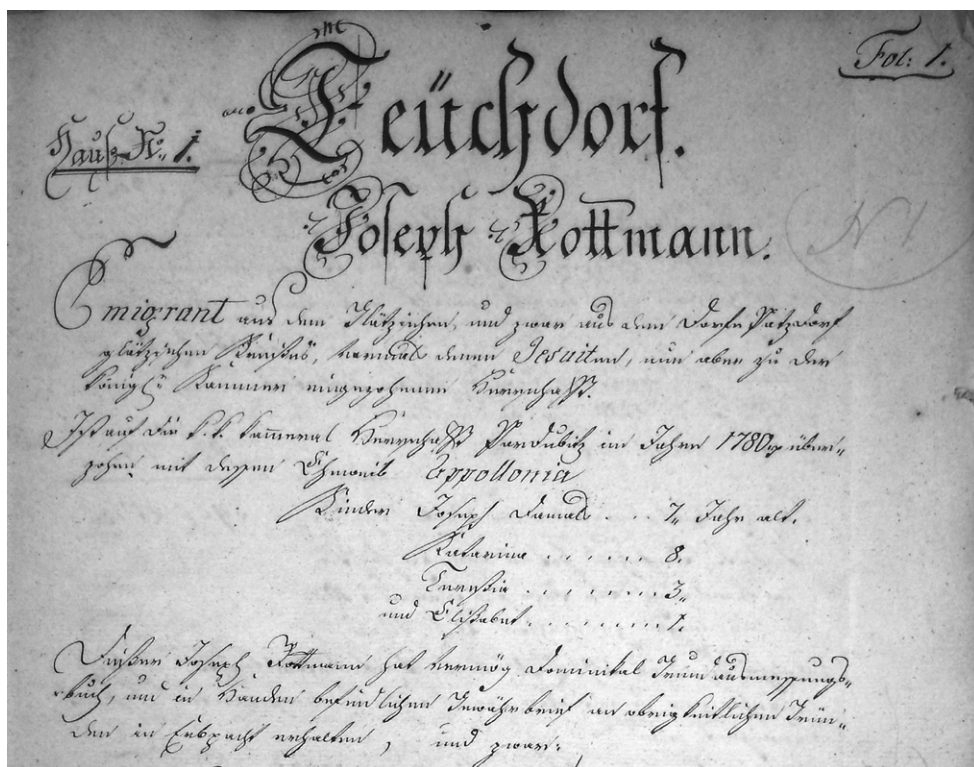 Fol: 1.
Teüchdorf.
Hauß No. 1.
Joseph Rottmann.
N 1
Emigrant aus dem Glätzischen, und zwar aus dem Dorfe Pätzdorf
glätzischen Kreißes, vormals denen Jesuiten, nun aber zu der
Königl: Kammer eingezohenen Herrschafft.
Ist auf die k. k. Kammeral Herrschafft Pardubitz im Jahre 1780 über-
zohen mit dessen Eheweib Appollonia
Kinder Joseph damals . . . 7„ Jahr alt.
Katarina . . . . . . . 8.
Teresia . . . . . . . 3„
und Elisabet . . . . . . . 1.
Dieser Joseph Rottmann hat vermög Dominikal Grundausmessungs-
buch, und in Handen befindlichen Gewährbrief an obrigkeitlichen Grün-
den in Erbpacht erhalten, und zwar: